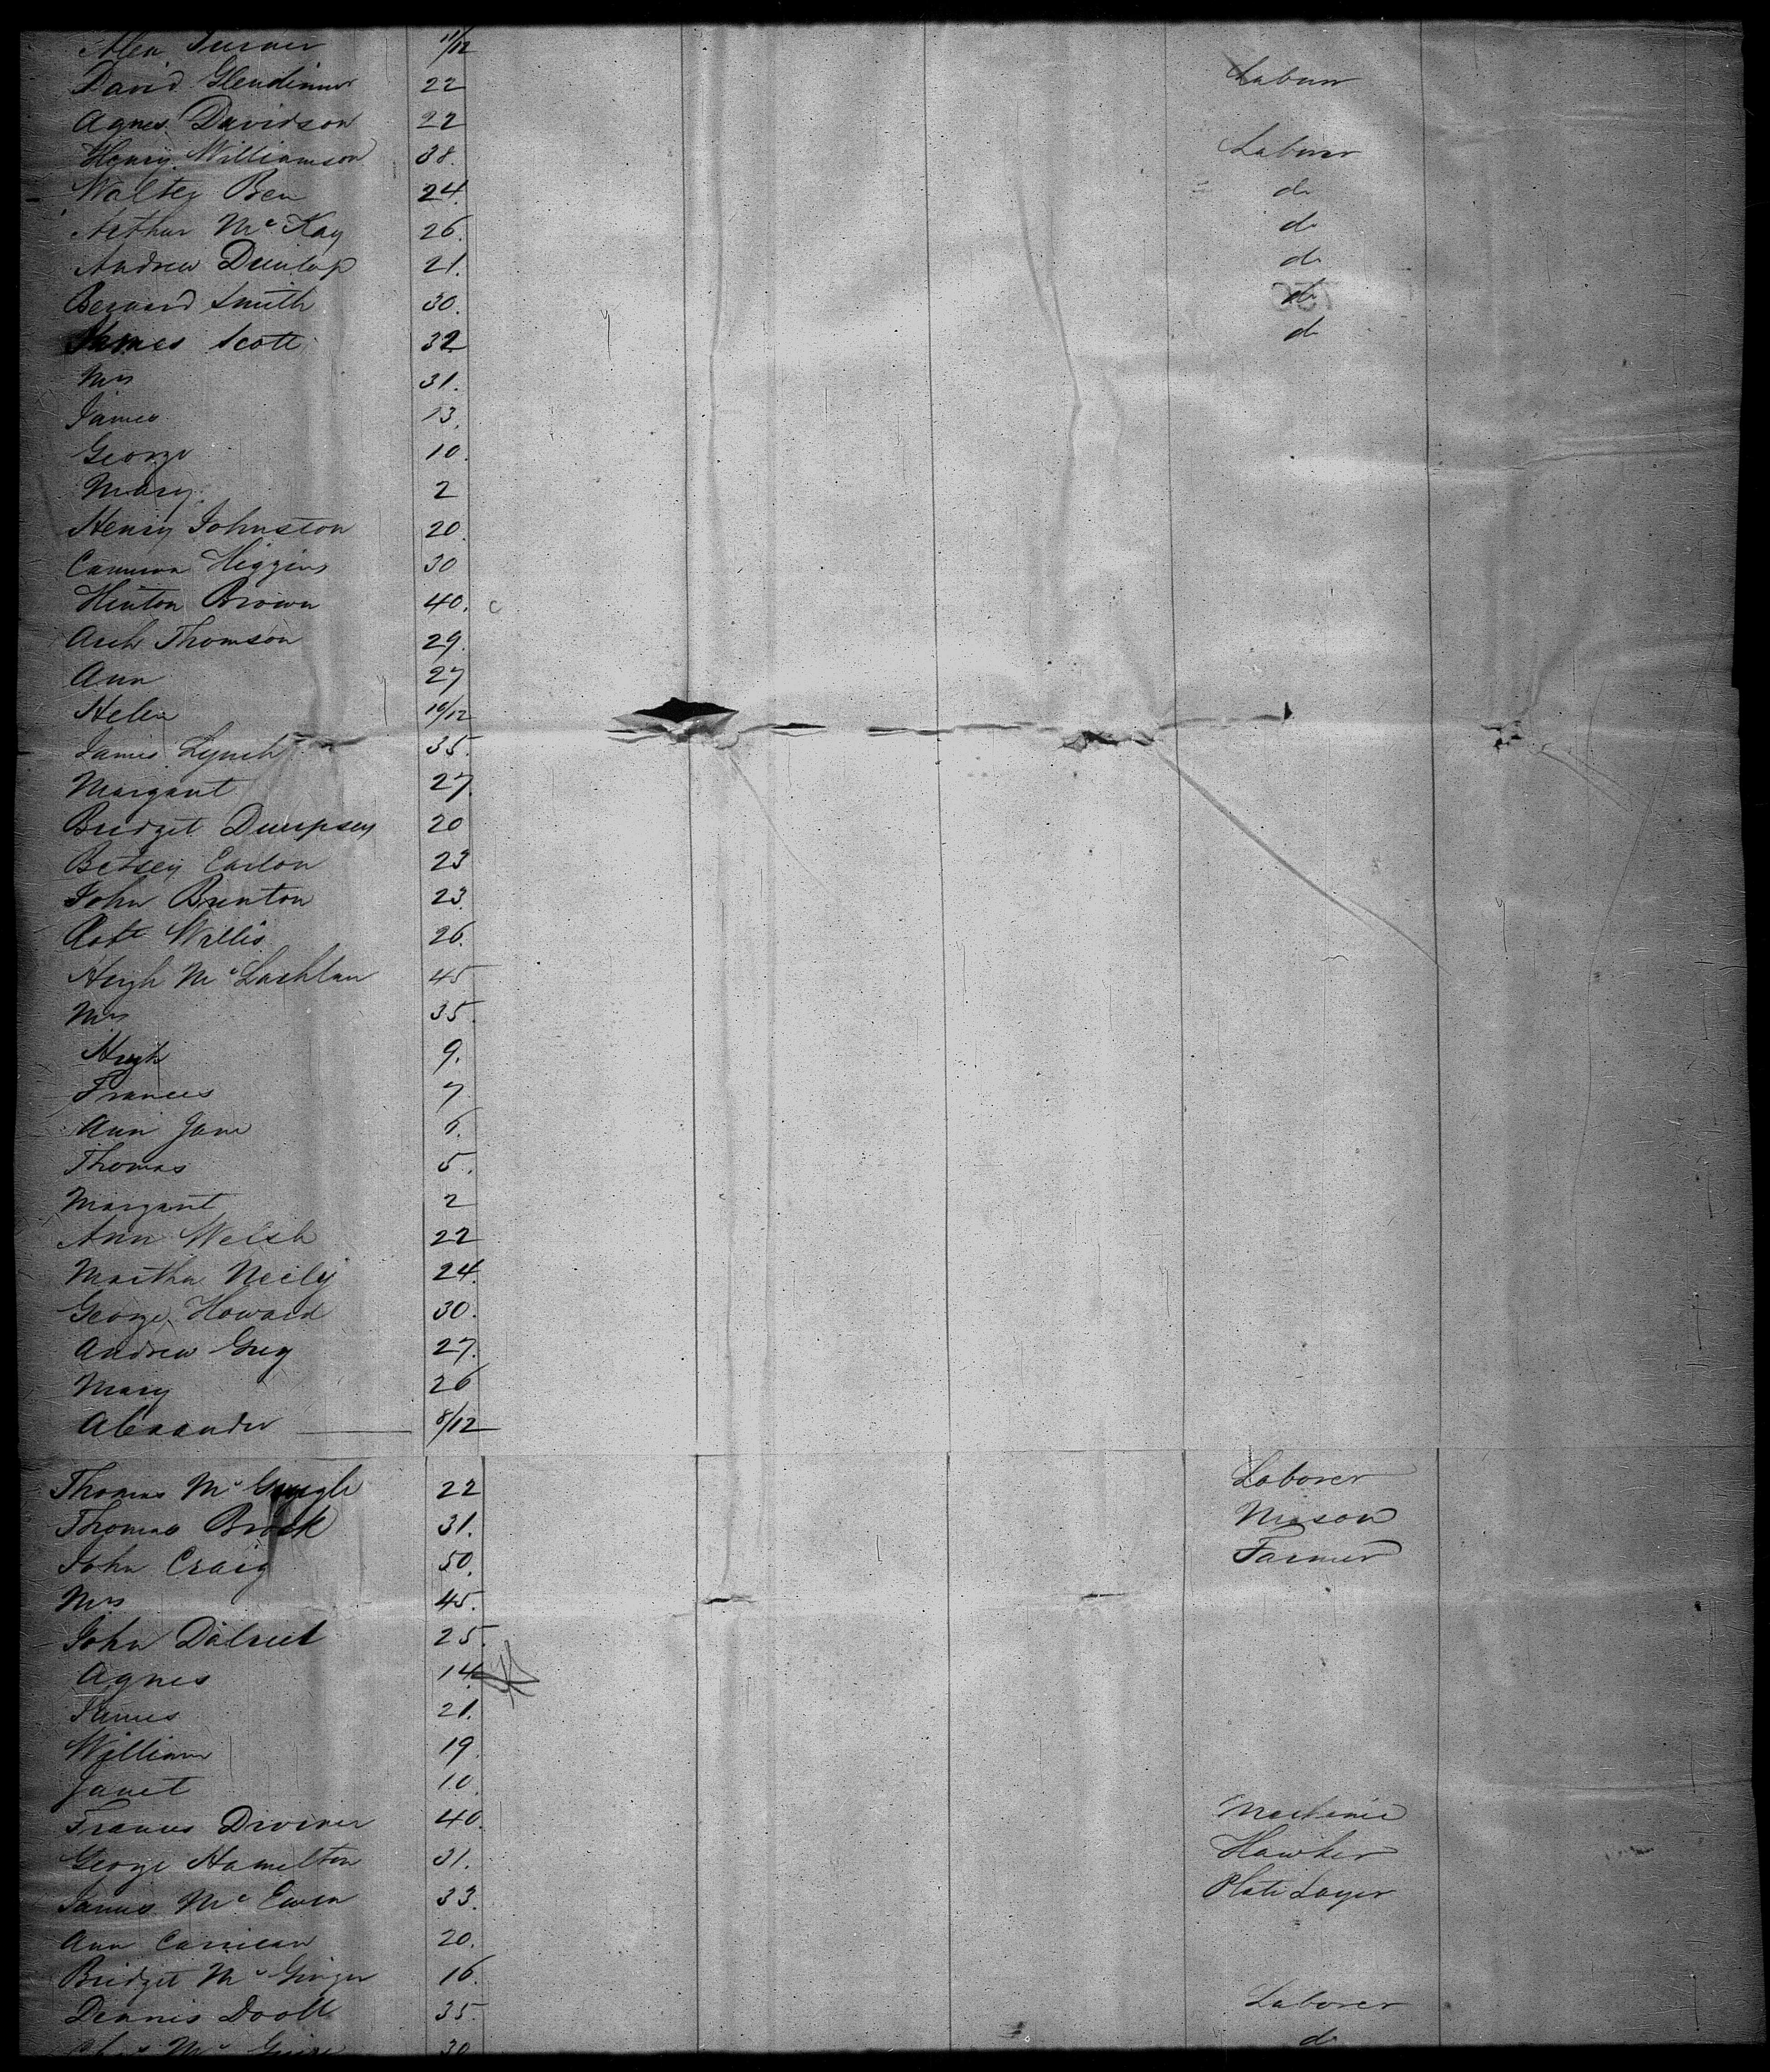 Alex Turner 11/12
David Glendinner 22 Laborer
Agnes Davidson 22
Henry Williamson 38. Laborer
Walter Ben 24. do
Arthur Mc Kay 26. do
Andrew Dunlop 21. do
Bernard Smith 30. do
James Scott 32 do
Mrs 31.
James 13.
George 10.
Mary 2
Henry Johnston 20.
Cameron Higgins 30
Hinton Brown 40.
Arch Thomson 29.
Ann 27
Helen 10/12
James Lynch 35.
Margaret 27.
Bridget Dempsey 20
Betsey Carlon 23
John Brunton 23.
Robt Willis 26.
Hugh Mc Lachlan 45
Mrs 35.
Hugh 9.
Frances 7
Ann Jane 6.
Thomas 5.
Margaret 2
Ann Welsh 22
Martha Neily 24.
George Howard 30.
Andrew Grey 27.
Mary 26
Alexander 8/12
Thomas Mc 22 Laborer
Thomas Brock 31. Mason
John Craig 50. Farmer
Mrs 45.
John 25.
Agnes 14.
James 21.
William 19.
Janet 10.
Francis Diviner 40. Mechanic
George Hamelton 31. Hawker
James Mc Ewen 33. Plate Layer
Ann Carrican 20.
Bridget Mc 16.
Dennis Dooll 35. Laborer
Mc Guire 30 do